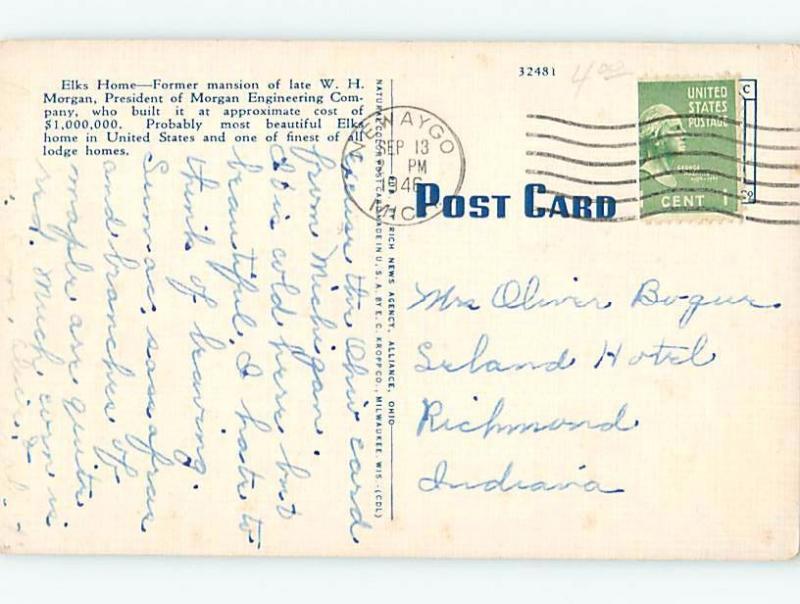 Elks Home—Former mansion of late W. H.
Morgan, President of Morgan Engineering Com-
pany, who built it at approximate cost of
$1,000,000. Probably most beautiful Elks
home in United States and one of finest of all
lodge homes.
32481
4.00
NEWAYGO
SEP 13
PM
1946
MICH
UNITED
STATES
POSTAGE
GEORGE
CENT 1
C
POST CARD
NATURAL COLOR POST CARD MADE IN U. S. A. BY E. C. KROPP CO., MILWAUKEE, WIS. (CDL)
RICH NEWS AGENCY, ALLIANCE, OHIO
Excuse the Ohio card
from Michigan.
It is cold here but
beautiful. I hate to
think of leaving.
Sumac, sassafras
and branches of
maple are quite
red. Much corn is
Mrs Oliver Bogue
Leland Hotel
Richmond
Indiana